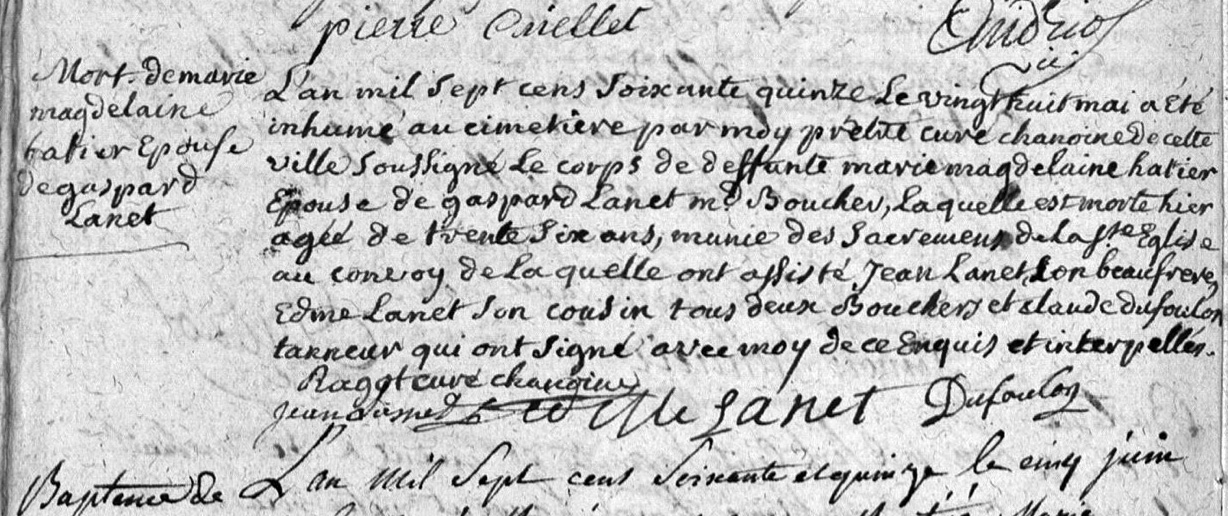 pierre Ouellet
Mort de marie
magdelaine
hatier Epouse
de gaspard
Lanet
L'an mil Sept cens Soixante quinze Le vingt huit mai a Eté
inhumé au cimetière par moy prêtre curé chanoine de cette
ville Soussigné Le corps de deffunte marie magdelaine hatier
Epouse de gaspard Lanet md Boucher, Laquelle est morte hier
agée de trente Six ans, munie des Sacremens de La Ste Eglise
au convoy de La quelle ont assisté Jean Lanet Son beaufrere,
Edme Lanet Son cousin tous deux Bouchers et Claude Dufoulon
tanneur qui ont Signé avec moy de ce Enquis et interpellés.
Ragot curé chanoine
jean Lanet Edme Lanet Dufoulon
Baptême de
L'an mil Sept cens Soixante et quinze le cinq juin